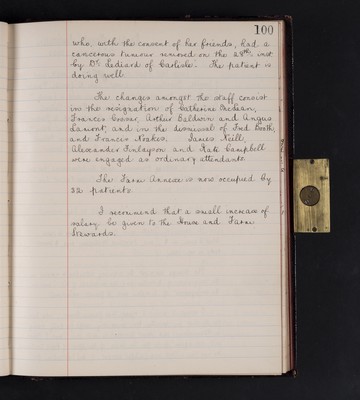 100
who, with the consent of her friends, had a
cancerous tumour removed on the 28th inst
by Dr Lediard of Carlisle. The patient is
doing well.
The changes amongst the staff consist
in the resignation of Catherine
Francis Arthur Baldwin and Angus
Lamont, and in the dismissal of Fred Booth,
and Francis Noakes. James Neill,
Alexander Finlayson and Kate Campbell
were engaged as ordinary attendants.
The Farm Annexe is now occupied by
32 patients.
I recommend that a small increase of
salary be given to the House and Farm
Stewards.